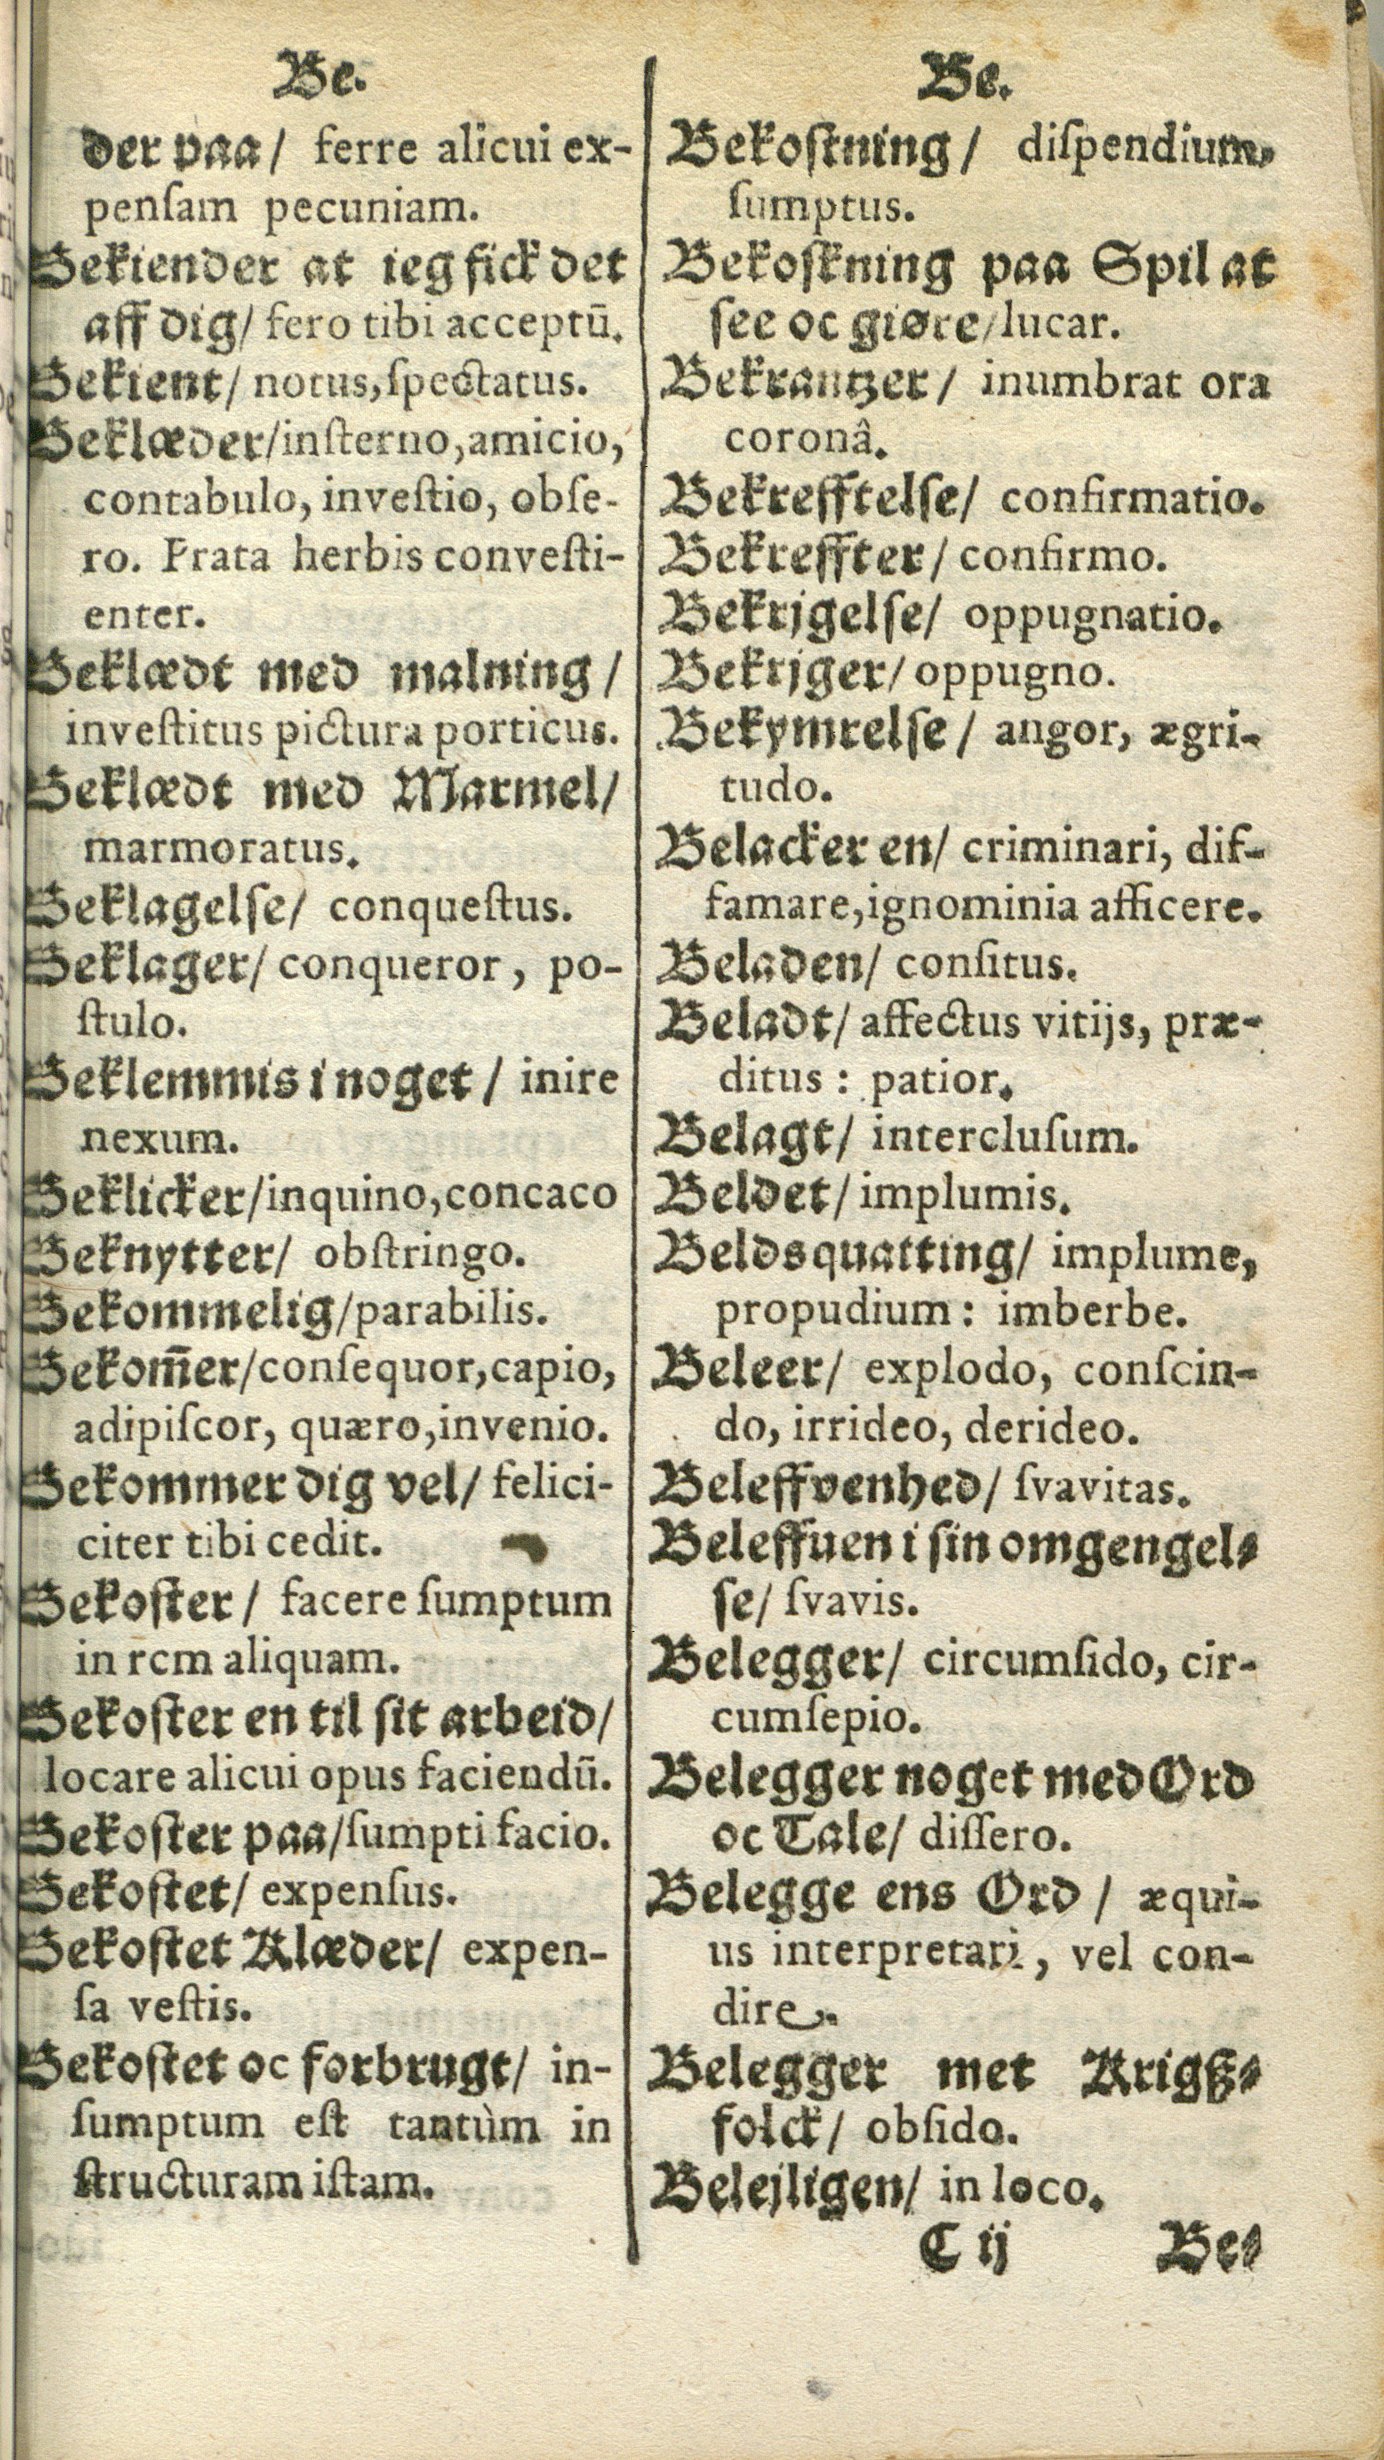 Be.
der paa/ ferre alicui ex-
penſam pecuniam.
Bekiender at ieg fick det
aff dig/ fero tibi acceptū.
Bekient/ notus, ſpectatus.
Beklæder/ inſterno, amicio,
contabulo, inveſtio, obſe-
ro. Prata herbis conveſti-
enter.
Beklædt med malning/
inveſtitus pictura porticus.
Beklædt med Marmel/
marmoratus.
Beklagelſe/ conqueſtus.
Beklager/ conqueror, po-
ſtulo.
Beklemmis i noget/ inire
nexum.
Beklicker/ inquino, concaco
Beknytter/ obſtringo.
Bekommelig/ parabilis.
Bekom̄er/ conſequor, capio,
adipiſcor, quæro, invenio.
Bekommer dig vel/ felici-
citer tibi cedit.
Bekoſter/ facere ſumptum
in rem aliquam.
Bekoſter en til ſit arbeid/
locare alicui opus faciendū.
Bekoſter paa/ ſumpti facio.
Bekoſtet/ expenſus.
Bekoſtet Klæder/ expen-
ſa veſtis.
Bekoſtet oc forbrugt/ in-
ſumptum eſt tantùm in
ſtructuram iſtam.
Be.
Bekoſtning/ diſpendium,
ſumptus.
Bekoſkning paa Spil at
ſee oc giøre/ lucar.
Bekrantzer/ inumbrat ora
coronâ.
Bekrefftelſe/ confirmatio.
Bekreffter/ confirmo.
Bekrjgelſe/ oppugnatio.
Bekrjger/ oppugno.
Bekymrelſe/ angor, ægri-
tudo.
Belacker en/ criminari, dif-
famare, ignominia afficere.
Beladen/ conſitus.
Beladt/ affectus vitijs, præ-
ditus: patior.
Belagt/ intercluſum.
Beldet/ implumis.
Beldsquatting/ implume,
propudium: imberbe.
Beleer/ explodo, conſcin-
do, irrideo, derideo.
Beleffvenhed/ ſvavitas.
Beleffuen i ſin omgengel-
ſe/ ſvavis.
Belegger/ circumſido, cir-
cumſepio.
Belegger noget med Ord
oc Tale/ diſſero.
Belegge ens Ord/ æqui-
us interpretari, vel con-
dire.
Belegger met Krigß-
folck/ obſido.
Belejligen/ in loco.
C ij Be-